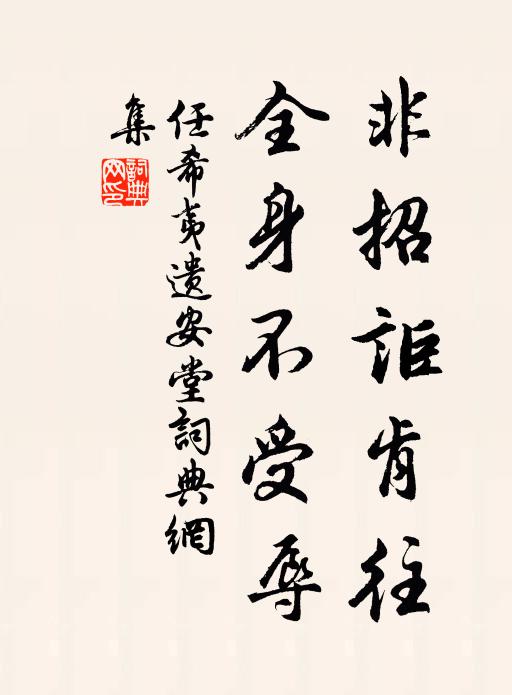 非招詎肯往
全身不受辱
任希夷遺安堂詞典網
集
詞典
网印